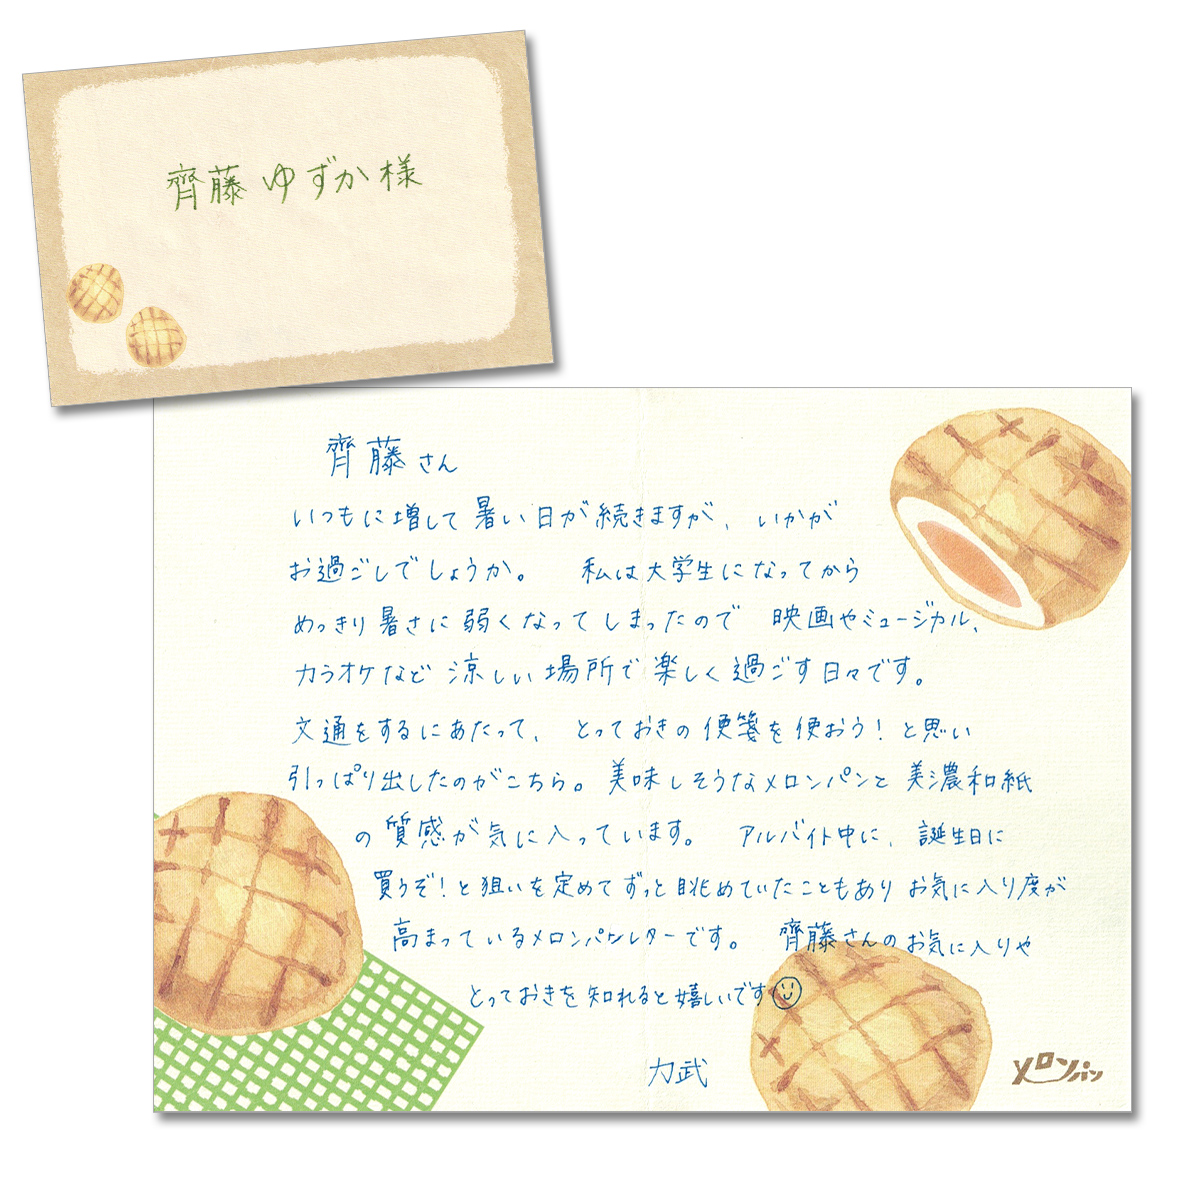 齊藤ゆずか様
齊藤さん
いつもに増して暑い日が続きますが、いかが
お過ごしでしょうか。 私は大学生になってから
めっきり暑さに弱くなってしまったので 映画やミュージカル、
カラオケなど涼しい場所で楽しく過ごす日々です。
文通をするにあたって、とっておきの便箋を使おう!と思い
引っぱり出したのがこちら。美味しそうなメロンパンと美濃和紙
の質感が気に入っています。 アルバイト中に、誕生日に
買うぞ!と狙いを定めてずっと眺めていたこともありお気に入り度が
高まっているメロンパンレターです。 齊藤さんのお気に入りや
とっておきを知れると嬉しいです
力武
メロンパン